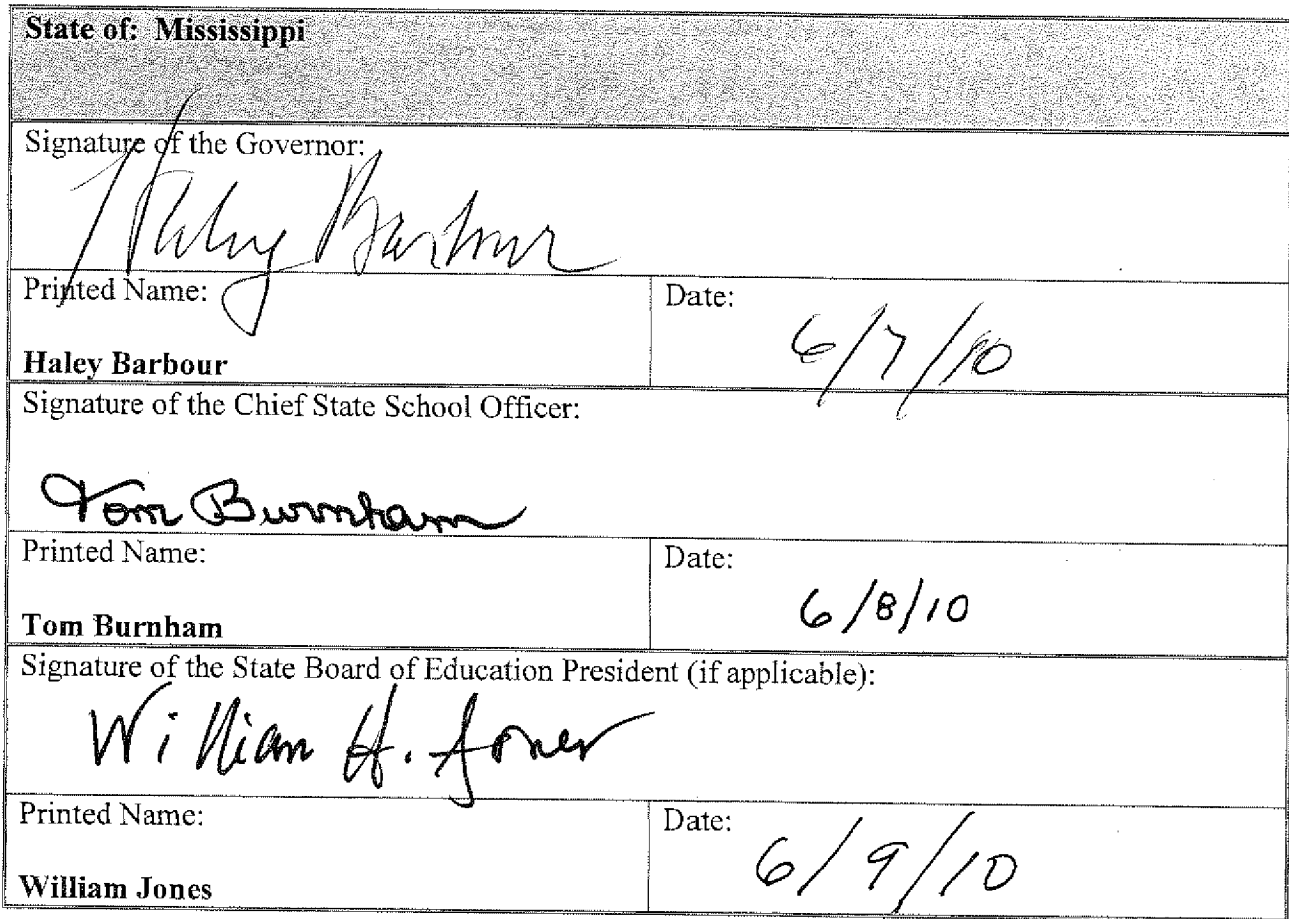 State of: Mississippi
Signature of the Governor:
Haley Barbour
Printed Name:
Haley Barbour
Date:
6/7/10
Signature of the Chief State School Officer:
Tom Burnham
Printed Name:
Tom Burnham
Date:
6/8/10
Signature of the State Board of Education President (if applicable):
William H. Jones
Printed Name:
William Jones
Date:
6/9/10